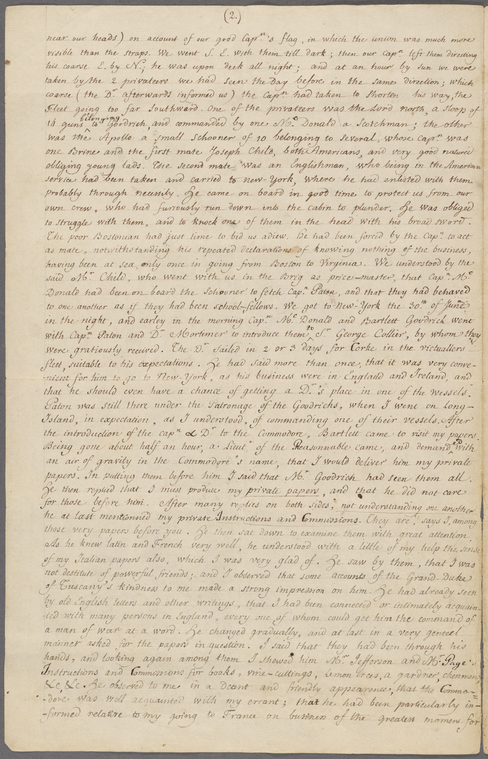 (2.)
near our heads) on account of our good Capn's flag, in which the union was much more
visible than the straps. We went S. E. with them till dark; then our Capn. left them directing
his coarse E. by N.; he was upon deck all night; and at an hour by sun we were
taken by the 2 privateers we had seen the day before in the same direction; which
coarse (the Dr. afterwards informed us) the Captn. had taken to shorten his way, the
Fleet going too far Southward. One of the privateers was the Lord North a sloop of
16 guns Goodrich, and commanded by one Mr. Donald a Scotchman; the other
was the Apollo a small schooner of 10 belonging to several, whose Captn. was
one Brine and the first mate Joseph Child, both Amerians, and very good natured
obliging young lads. The second mate was an Englishman, who being in the American
service had been taken and carried to New-York, where he had enlisted with them
probably through necessity. He came on board in good time to protect us from our
own crew, who had furiously run down into the cabin to plunder. He was obliged
to struggle with them, and to knock one of them in the head with his broad sword.
The poor Bostonean had just time to bid us adieu. He had been forced by the Captn. to act
as mate, notwithstanding his repeated declarations of knowing nothing of the business,
having been at sea only once in going from Boston to Virginia. We understood by the
said Mr. Child, who went with us in the Brig as price-master, that Capn. Mc.
Donald had been on board the Schooner to fetch Capn. Paton, and that they had behaved
to one another as if they had been school-fellows. We got to New-York the 30th. of June
in the night, and earley in the morning Capn. Mc. Donald and Bartlett Goodrick went
with Capn. Paton and Dr. Mortimer to introduce them to Sr. George Collier, by whom they
were gratiously received. The Dr. sailed in 2 or 3 days for Corke in the victuallers
fleet, suitable to his expectations. He had said more than once, that it was very conve-
nient for him to go to New York, as his business were in England and Ireland, and
that he should even have a chance of getting a Dr's place in one of the vessels.
Paton was still there under the Patronage of the Goodrichs, when I went on Long-
Island, in expectation, as I understood, of commanding one of their vessels. After
the introduction of the Capn. & Dr. to the Commodore, Bartlett came to visit my papers
Being gone about half an hour, a Lieut. of the Reasonnable came, and demanded with
an air of gravity in the Commodore's name, that I would deliver him my private
papers. In putting them before him I said that Mr. Goodrich had seen them all.
He then replied that I must produce my private papers, and that he did not care
for those before him. After many replies on both sides, not understanding one another
he at last mentionned my private Instructions and Commissions. They are, says I, among
these very papers before you. He then sat down to examine them with great attention.
As he knew latin and French very well, he understood with a little of my help the sense
of my Italian papers also, which I was very glad of. He saw by them, that I was
not destitute of powerful friends; and I observed that some accounts of the Grand Duke
of Tuscany's kindness to me made a strong impression on him. He had already seen
by old English letters and other writings, that I had been connected or intimately acquain-
ted with many persons in England, every one of whom could get him the command of
a man of war at a word. He changed gradually, and at last in a very general
manner asked for the papers in question. I said that they had been through his
hands, and looking again among them I shewed him Mr. Jefferson and Mr. Page
Instructions and Commissions for books, vine-cuttings, Lemon trees, a gardner,
&c, &c. He observed to me in a decent and friendly appearence, that the Commo-
dore was well acquainted with my errant; that he had been particularly in-
formed relative to my going to France on business of the greatest moment for